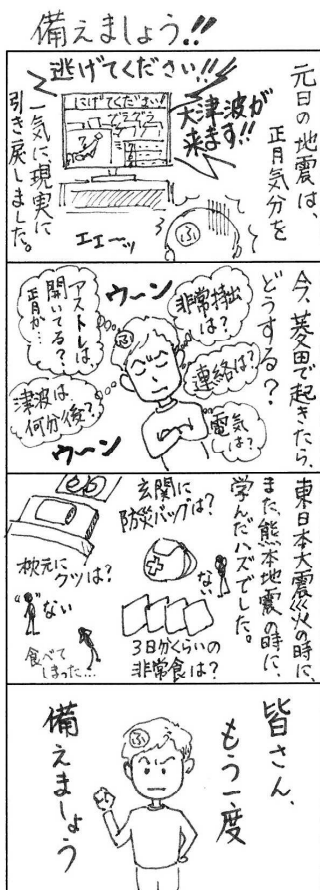 備えましょう!!
元日の地震は、
正月気分を
一気に現実に
引き戻しました。
逃げてください!!
大津波が
来ます!!
にげてください!
エエーッ
ふ
今、菱田で起きたら、
どうする?
ウーン
非常持出
は?
連絡は?
電気
は?
アストレは、
開いてる?
正月か…
津波は
何分後?
ウ〜ン
ふ
東日本大震災の時に、
また、熊本地震の時に、
学んだハズでした。
玄関に
防災バッグは?
ない
枕元に
クツは?
"ない
3日分くらいの
非常食は?
食べて
しまった…
皆さん、
もう一度
備えましょう
ふ